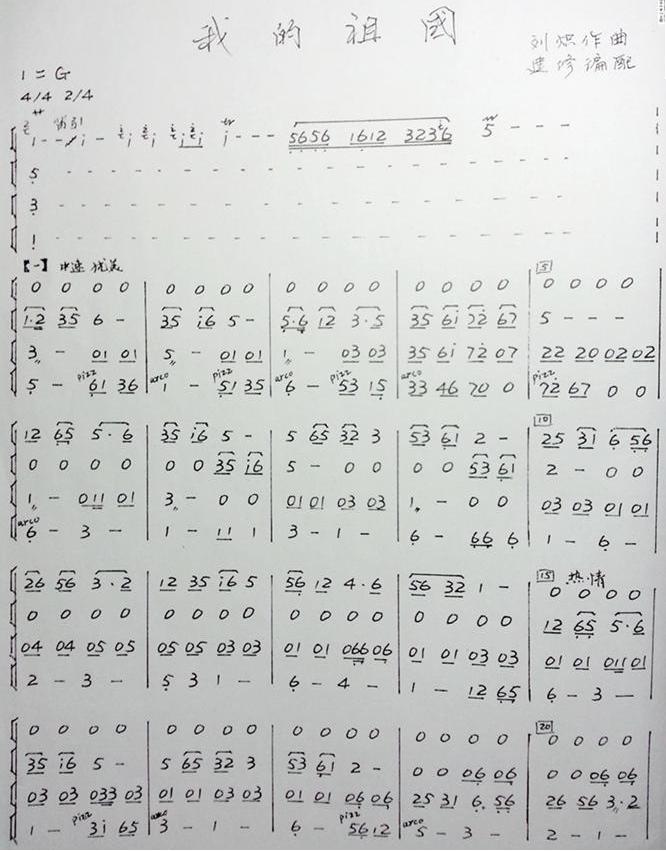 我的祖國
刘炽作曲
建修编配
1=G
4/4 2/4
散引
i - - i - i i i i i tr i - - - 5656 1612 3236 5 - - -
5 - - - - - - - - - - - - - -
3 - - - - - - - - - - - - - -
1 - - - - - - - - - - - - - -
【一】中速 优美
0 0 0 0 | 0 0 0 0 | 0 0 0 0 | 0 0 0 0 | 5 0 0 0 0
1·2 35 6 - | 35 i6 5 - | 5·6 12 3·5 | 35 6i 72 67 | 5 - - -
3 - 01 01 | 5 - 01 01 | 1 - 03 03 | 35 61 72 07 | 22 20 02 02
5 - pizz 61 36 | arco 1 - pizz 51 35 | arco 6 - pizz 53 15 | arco 33 46 70 0 | pizz 72 67 0 0
12 65 5·6 | 35 i6 5 - | 5 65 32 3 | 53 61 2 - | 10 25 31 6 56
0 0 0 0 | 0 0 35 i6 | 5 - 0 0 | 0 0 53 61 | 2 - 0 0
1 - 011 01 | 3 - 0 0 | 01 01 03 03 | 1 - 0 0 | 03 03 01 01
arco 6 - 3 - | 1 - 11 1 | 3 - 1 - | 6 - 66 6 | 1 - 6 -
26 56 3·2 | 12 35 i6 5 | 56 12 4·6 | 56 32 1 - | 15 热情 0 0 0 0
0 0 0 0 | 0 0 0 0 | 0 0 0 0 | 0 0 0 0 | 12 65 5·6
04 04 05 05 | 05 05 03 03 | 01 01 066 06 | 01 01 03 03 | 01 01 011 01
2 - 3 - | 5 3 1 - | 6 - 4 - | 1 - 12 65 | 6 - 3 -
0 0 0 0 | 0 0 0 0 | 0 0 0 0 | 0 0 0 0 | 20 0 0 0 0
35 i6 5 - | 5 65 32 3 | 53 61 2 - | 0 0 06 06 | 0 0 06 06
03 03 033 03 | 01 01 03 03 | 01 01 06 06 | 25 31 6 56 | 26 56 3·2
1 - pizz 3i 65 | arco 3 - 1 - | 6 - pizz 5612 | arco 5 - 3 - | 2 - 1 -